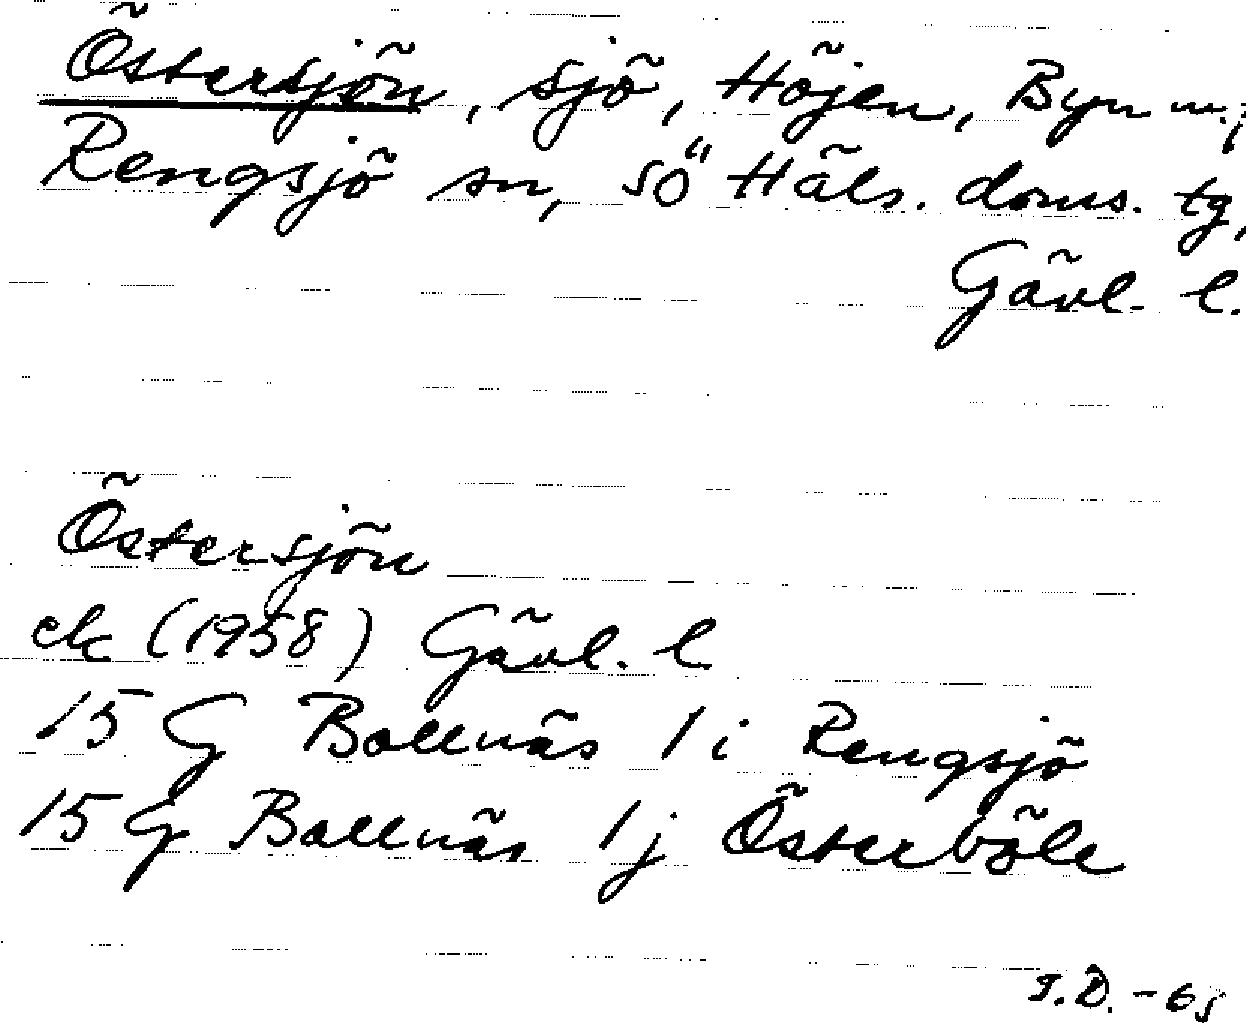 Östersjön, sjö, Höjen, Byn m.fl
Rengsjö sn, sö Häls. doms. tg,
Gävl. l.
Östersjön
ek (1958) Gävl. l.
15 G Bollnäs 1 i Rengsjö
15 G Bollnäs 1 j Österböle
I.D. -65